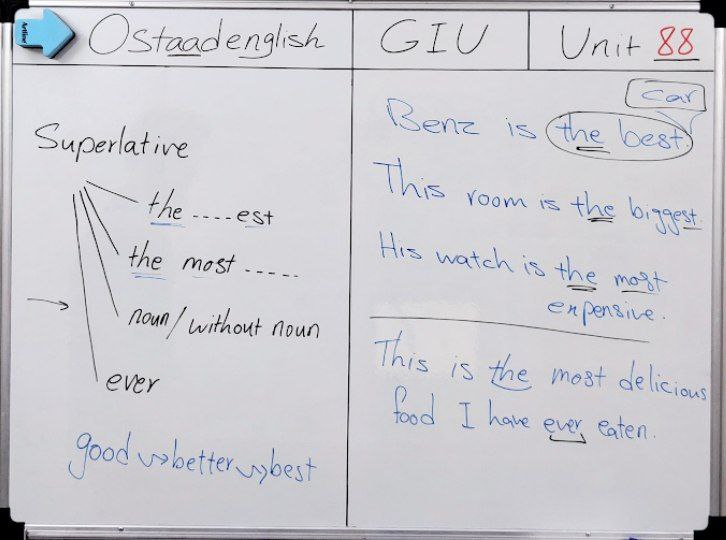 Artline
Ostaadenglish
GIU
Unit 88
Superlative
the ----est
the most -----
noun/without noun
ever
good → better → best
car
Benz is the best.
This room is the biggest.
His watch is the most
expensive.
This is the most delicious
food I have ever eaten.